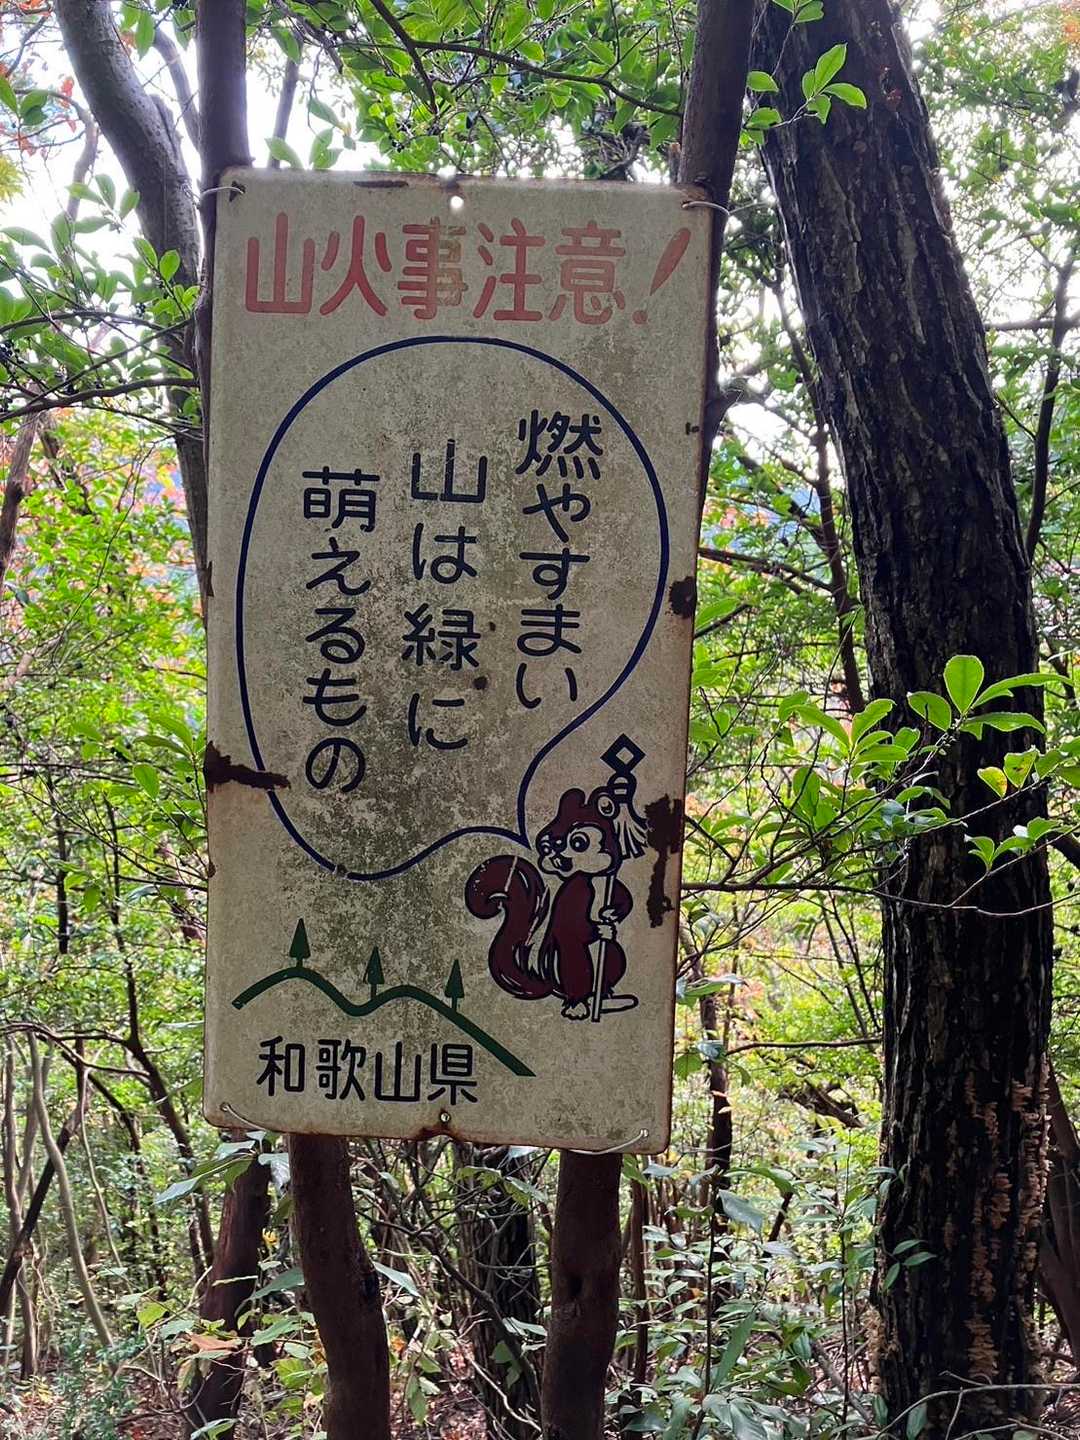 山火事注意!
燃やすまい
山は緑に
萌えるもの
和歌山県